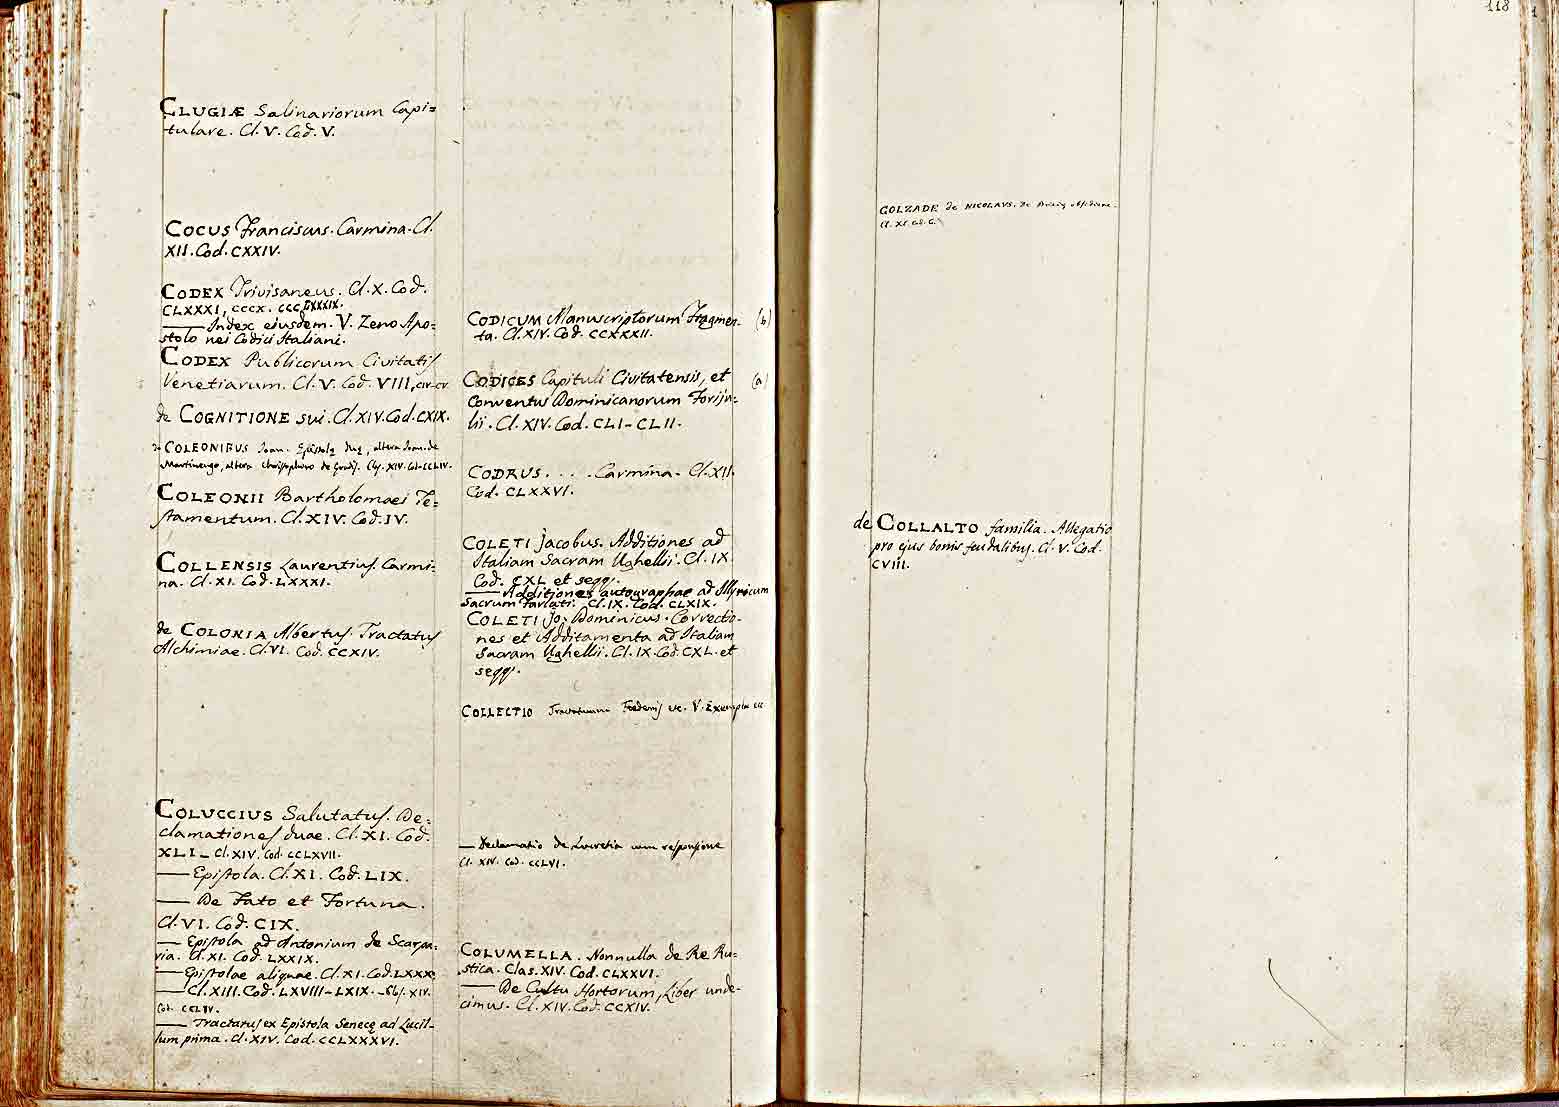 CLUGIÆ Salinariorum Capi=
tulare. Cl. V. Cod. V.
COCUS Franciscus. Carmina. Cl.
XII. Cod. CXXIV.
CODEX Trivisaneus. Cl. X. Cod.
CLXXXI, CCCX. CCCLXXXIX.
—— Index ejusdem. V. Zeno Apo=
stolo nei Codici Italiani.
CODEX Publicorum Civitatis
Venetiarum. Cl. V. Cod. VIII, CIV. CV
de COGNITIONE sui. Cl. XIV. Cod. CXIX.
de COLEONIBUS Joan. Epistolę duę, altera Joan. de
Martinengo, altera Christophoro de Cl. XIV. Cod. CCLIV.
COLEONII Bartholomaei Te=
stamentum. Cl. XIV. Cod. IV.
COLLENSIS Laurentius. Carmi=
na. Cl. XI. Cod. LXXXI.
de COLONIA Albertus. Tractatus
Alchimiae. Cl. VI. Cod. CCXIV.
COLUCCIUS Salutatus. De=
clamationes duae. Cl. XI. Cod.
XLI – Cl. XIV. Cod. CCLXVII.
—— Epistola. Cl. XI. Cod. LIX.
—— De Fato et Fortuna.
Cl. VI. Cod. CIX.
—— Epistola ad Antonium de Scarpe=
ria. Cl. XI. Cod. LXXIX.
—— Epistolae aliquae. Cl. XI. Cod. LXXX
—— Cl. XIII. Cod. LXVIII–LXIX. – Cl. XIV.
Cod. CCLIV.
—— Tractatus ex Epistola Senecę ad Lucil=
lum prima. Cl. XIV. Cod. CCLXXXVI.
CODICUM Manuscriptorum Fragmen- (b)
ta. Cl. XIV. Cod. CCXXXII.
CODICES Capituli Civitatensis, et (a)
Conventus Dominicanorum Foriju=
lii. Cl. XIV. Cod. CLI–CLII.
CODRUS. . . . Carmina. Cl. XII.
Cod. CLXXVI.
COLETI Jacobus. Additiones ad
Italiam Sacram Ughellii. Cl. IX.
Cod. CXL et seqq.
—— Additiones autographae ad Illyricum
Sacrum Farlati. Cl. IX. Cod. CLXIX.
COLETI Jo: Dominicus. Correctio-
nes et Additamenta ad Italiam
Sacram Ughellii. Cl. IX. Cod. CXL. et
seqq.
COLLECTIO Tractatuum Foederis etc. V. Exempla etc
— Declamatio de Lucretia cum responsione
Cl. XIV. Cod. CCLVI.
COLUMELLA. Nonnulla de Re Ru=
stica. Clas. XIV. Cod. CLXXVI.
—— De Cultu Hortorum, Liber unde-
cimus. Cl. XIV. Cod. CCXIV.
118
GOLZADE de NICOLAUS. De
Cl. XI. Cod. C.
de COLLALTO familia. Allegatio
pro ejus bonis feudalibus. Cl. V. Cod.
CVIII.